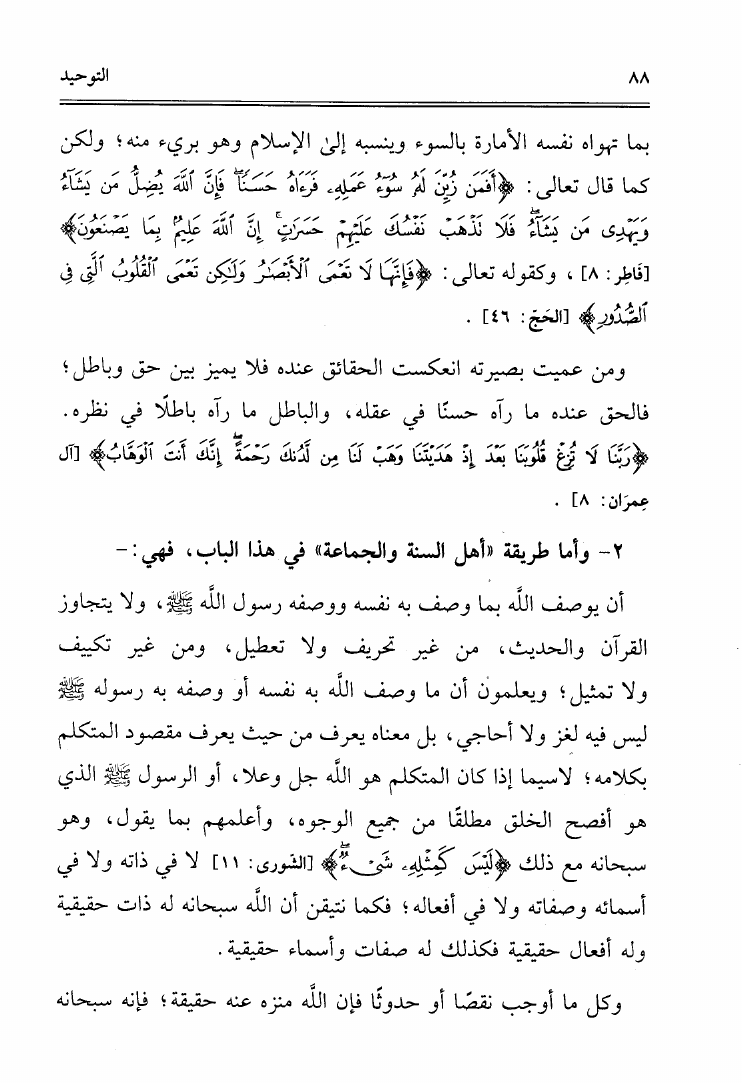 ٨٨ التوحيد
بما تهواه نفسه الأمارة بالسوء وينسبه إلىٰ الإسلام وهو بريء منه؛ ولكن
كما قال تعالى: ﴿أَفَمَن زُيِّنَ لَهُۥ سُوٓءُ عَمَلِهِۦ فَرَءَاهُ حَسَنٗاۖ فَإِنَّ ٱللَّهَ يُضِلُّ مَن يَشَآءُ
وَيَهۡدِي مَن يَشَآءُۖ فَلَا تَذۡهَبۡ نَفۡسُكَ عَلَيۡهِمۡ حَسَرَٰتٍۚ إِنَّ ٱللَّهَ عَلِيمُۢ بِمَا يَصۡنَعُونَ﴾
[فَاطِر: ٨]، وكقوله تعالى: ﴿فَإِنَّهَا لَا تَعۡمَى ٱلۡأَبۡصَٰرُ وَلَٰكِن تَعۡمَى ٱلۡقُلُوبُ ٱلَّتِي فِي
ٱلصُّدُورِ﴾ [الحَجّ: ٤٦].
ومن عميت بصيرته انعكست الحقائق عنده فلا يميز بين حق وباطل؛
فالحق عنده ما رآه حسنًا في عقله، والباطل ما رآه باطلًا في نظره.
﴿رَبَّنَا لَا تُزِغۡ قُلُوبَنَا بَعۡدَ إِذۡ هَدَيۡتَنَا وَهَبۡ لَنَا مِن لَّدُنكَ رَحۡمَةًۚ إِنَّكَ أَنتَ ٱلۡوَهَّابُ﴾ [آل
عِمرَان: ٨].
٢- وأما طريقة «أهل السنة والجماعة» في هذا الباب، فهي:-
أن يوصف اللَّه بما وصف به نفسه ووصفه رسول اللَّه ﷺ، ولا يتجاوز
القرآن والحديث، من غير تحريف ولا تعطيل، ومن غير تكييف
ولا تمثيل؛ ويعلمون أن ما وصف اللَّه به نفسه أو وصفه به رسوله ﷺ
ليس فيه لغز ولا أحاجي، بل معناه يعرف من حيث يعرف مقصود المتكلم
بكلامه؛ لاسيما إذا كان المتكلم هو اللَّه جل وعلا، أو الرسول ﷺ الذي
هو أفصح الخلق مطلقًا من جميع الوجوه، وأعلمهم بما يقول، وهو
سبحانه مع ذلك ﴿لَيۡسَ كَمِثۡلِهِۦ شَيۡءٞۖ﴾ [الشّورى: ١١] لا في ذاته ولا في
أسمائه وصفاته ولا في أفعاله؛ فكما نتيقن أن اللَّه سبحانه له ذات حقيقية
وله أفعال حقيقية فكذلك له صفات وأسماء حقيقية.
وكل ما أوجب نقصًا أو حدوثًا فإن اللَّه منزه عنه حقيقة؛ فإنه سبحانه